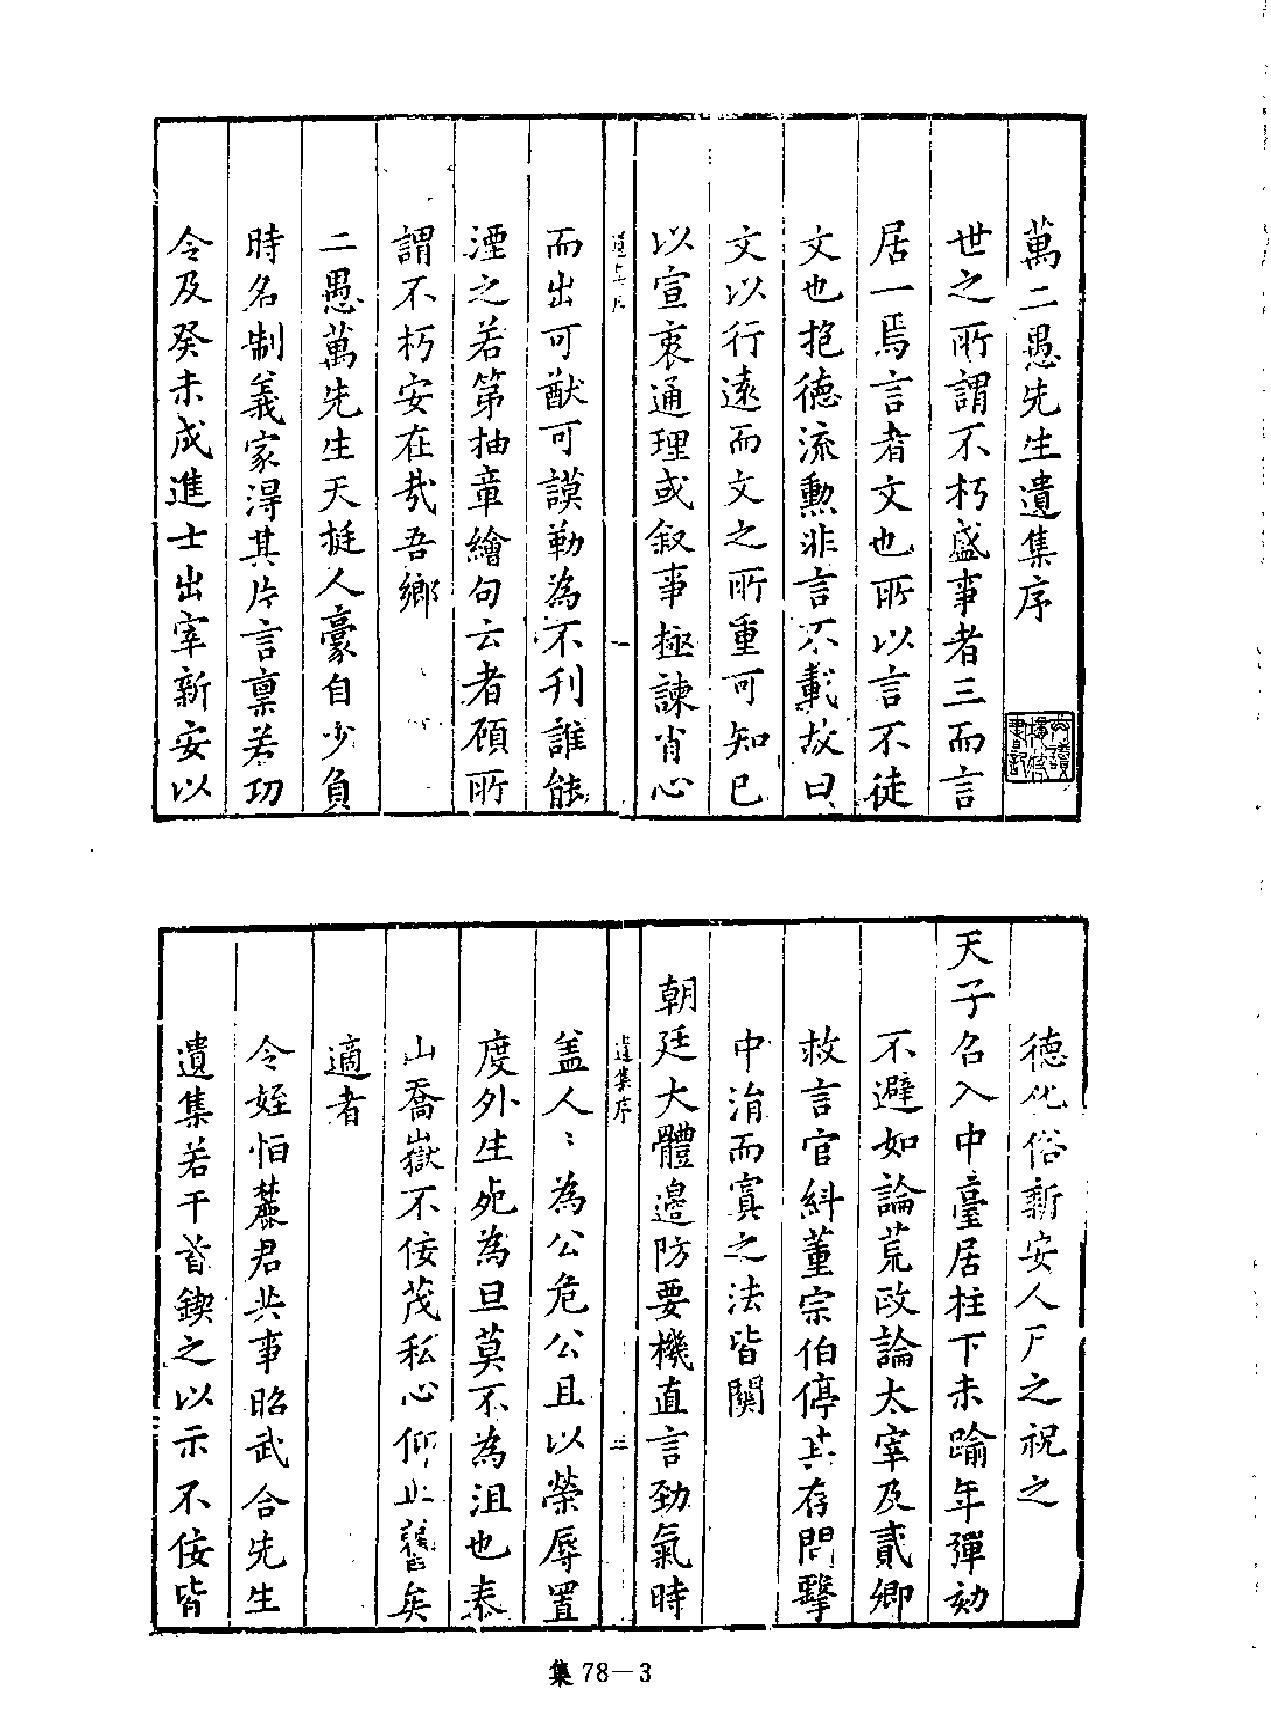 萬二愚先生遺集序
世之所謂不朽盛事者三而言
居一焉言者文也所以言不徒
文也抱德流勲非言不載故曰
文以行遠而文之所重可知已
以宣衷通理或叙事極諫肖心
而出可猷可謨勒為不刊誰能
湮之若第抽章繪句云者頋所
謂不朽安在㢤吾鄉
二愚萬先生天挺人豪自少負
時名制義家淂其片言禀若功
令及癸未成進士出宰新安以
德化俗新安人尸之祝之
天子名入中臺居柱下未踰年彈劾
不避如論荒政論太宰及貳卿
救言官糾董宗伯停其存問擊
中㳙而寘之法皆關
朝廷大體邊防要機直言勁氣時
遺集序
盖人〻為公危公且以榮辱置
度外生死為旦莫不為沮也泰
山喬嶽不佞茂私心仰止舊矣
適者
令姪怕麓君共事昭武合先生
遺集若干首鍥之以示不佞皆
集 78－3